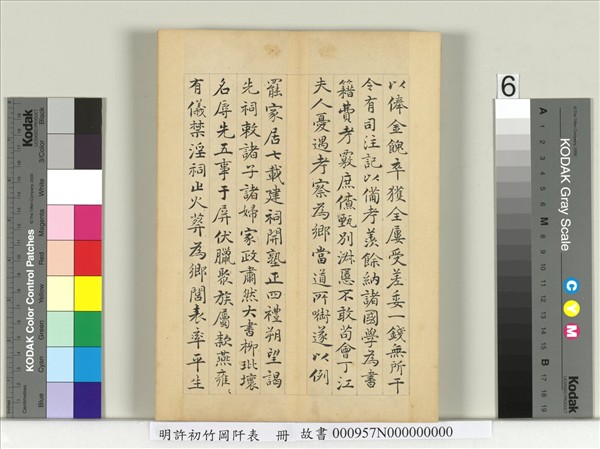 以俸金餽卒獲全屢受差委一錢無所干
令有司注記以備考羨餘納諸國學為書
籍費考覈庶僚甄別淑慝不敢苟會丁江
夫人憂過考察為鄉當道所嗛遂以例
罷家居七載建祠開塾正四禮朔望謁
先祠敕諸子諸婦家政肅然大書柳玭壞
名辱先五事于屏伏臘聚族屬款燕雍〻
有儀禁淫祠止火葬為鄉閭表率平生
明許初竹岡阡表 冊 故書 000957N000000000
6
KODAK Color Control Patches
Kodak
Blue Cyan Green Yellow Red Magenta White 3/Color Black
KODAK Gray Scale
C Y M
Kodak
A 1 2 3 4 5 6 M 8 9 10 11 12 13 14 15 B 17 18 19